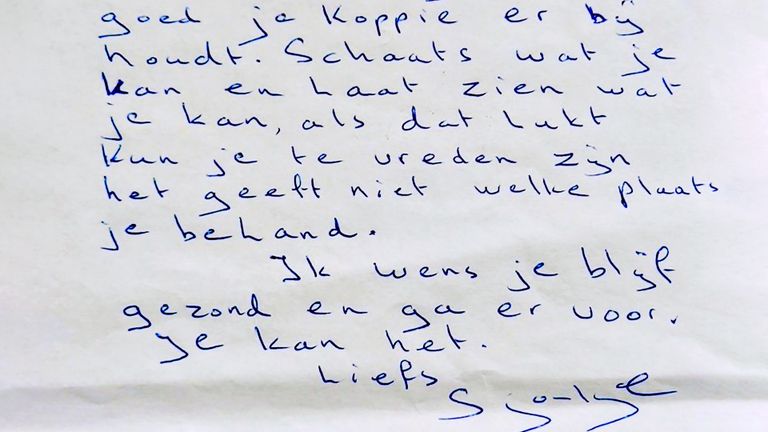 goed je koppie er bij
houdt. Schaats wat je
kan en laat zien wat
je kan, als dat lukt
kun je te vreden zijn
het geeft niet welke plaats
je behand.
Ik wens je blijf
gezond en ga er voor.
Je kan het.
Liefs